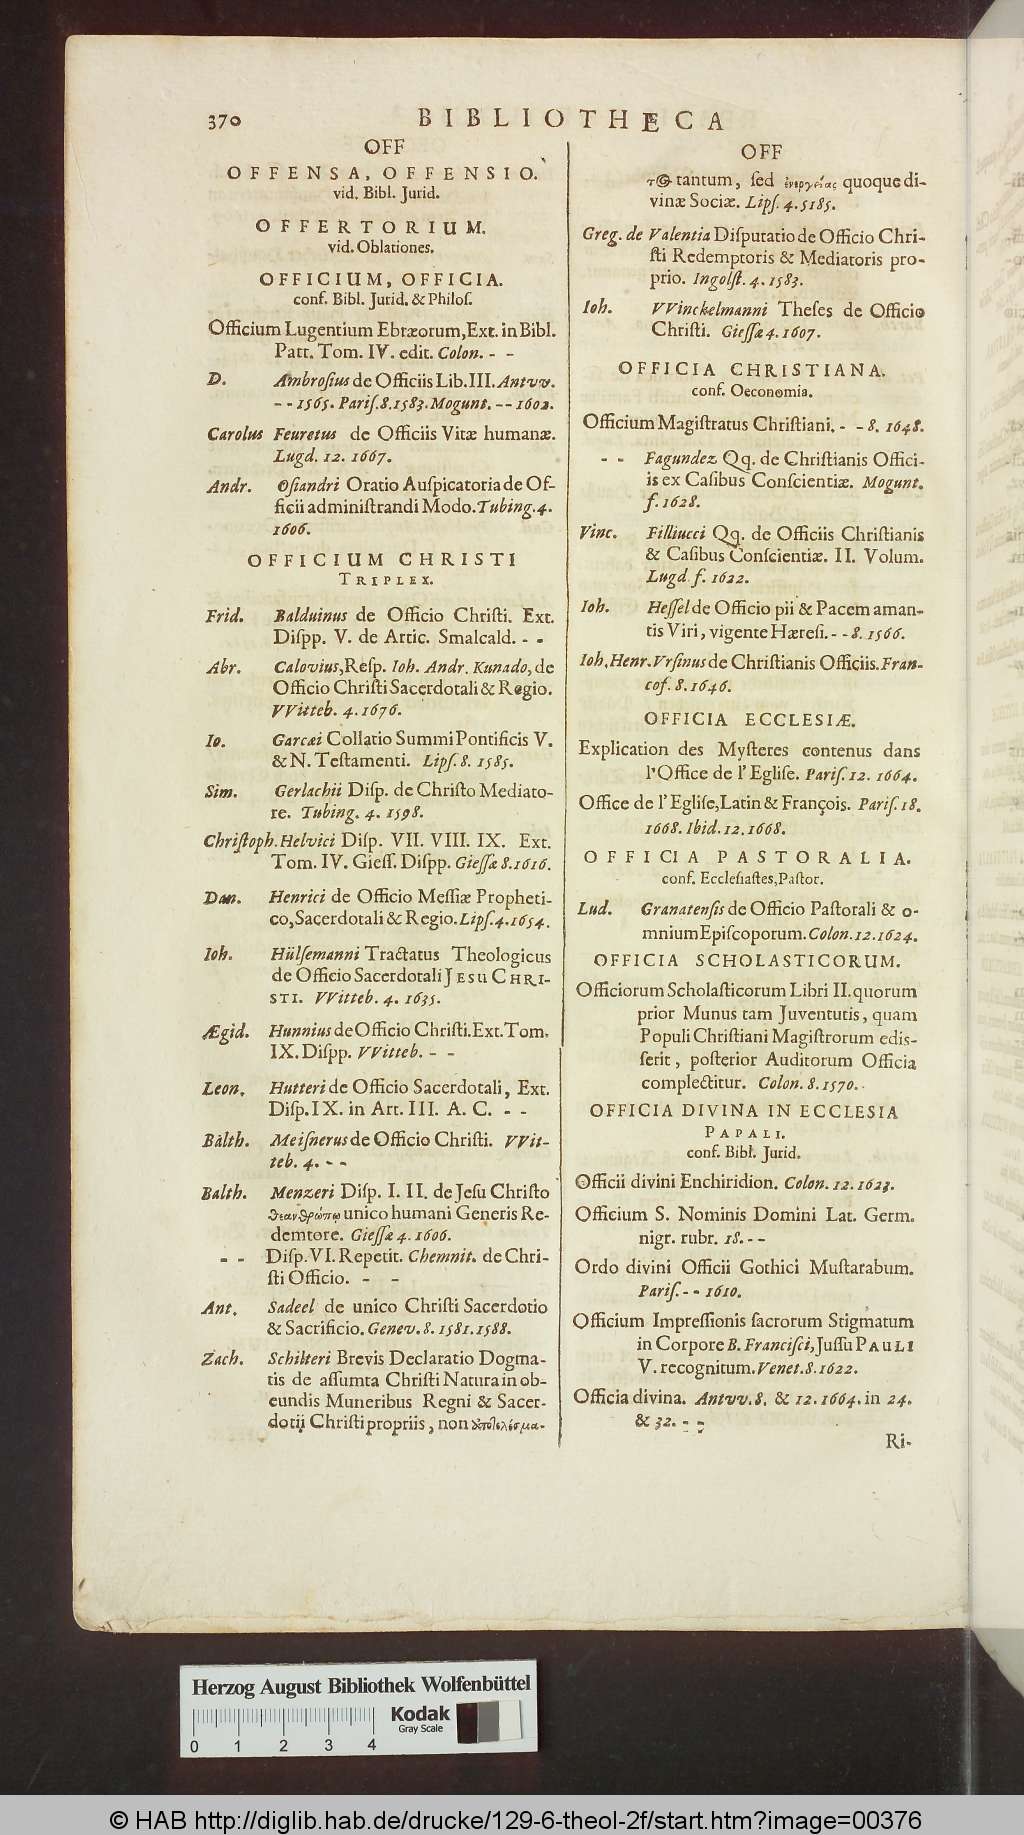 370 BIBLIOTHECA
OFF
OFFENSA, OFFENSIO.
vid. Bibl. Jurid.
OFFERTORIUM.
vid. Oblationes.
OFFICIUM, OFFICIA.
conf. Bibl. Jurid. & Philoſ.
Officium Lugentium Ebræorum, Ext. in Bibl.
Patr. Tom. IV. edit. Colon. - -
D. Ambroſius de Officiis Lib. III. Antvv.
- - 1565. Pariſ. 8. 1583. Mogunt. - - 1602.
Carolus Feuretus de Officiis Vitæ humanæ.
Lugd. 12. 1667.
Andr. Oſiandri Oratio Auſpicatoria de Of-
ficii adminiſtrandi Modo. Tubing. 4.
1606.
OFFICIUM CHRISTI
TRIPLEX.
Frid. Balduinus de Officio Chriſti. Ext.
Diſpp. V. de Artic. Smalcald. - -
Abr. Calovius, Reſp. Ioh. Andr. Kunado, de
Officio Chriſti Sacerdotali & Regio.
VVitteb. 4. 1676.
Io. Garcæi Collatio Summi Pontificis V.
& N. Teſtamenti. Lipſ. 8. 1585.
Sim. Gerlachii Diſp. de Chriſto Mediato-
re. Tubing. 4. 1598.
Chriſtoph. Helvici Diſp. VII. VIII. IX. Ext.
Tom. IV. Gieſſ. Diſpp. Gieſſæ 8. 1616.
Dan. Henrici de Officio Meſſiæ Propheti-
co, Sacerdotali & Regio. Lipſ. 4. 1654.
Ioh. Hülſemanni Tractatus Theologicus
de Officio Sacerdotali JESU CHRI-
STI. VVitteb. 4. 1635.
Ægid. Hunnius de Officio Chriſti. Ext. Tom.
IX. Diſpp. VVitteb. - -
Leon. Hutteri de Officio Sacerdotali, Ext.
Diſp. IX. in Art. III. A. C. - -
Balth. Meiſnerus de Officio Chriſti. VVit-
teb. 4. - -
Balth. Menzeri Diſp. I. II. de Jeſu Chriſto
θεανθρώπῳ unico humani Generis Re-
demtore. Gieſſæ 4. 1606.
- - Diſp. VI. Repetit. Chemnit. de Chri-
ſti Officio. - -
Ant. Sadeel de unico Chriſti Sacerdotio
& Sacrificio. Genev. 8. 1581. 1588.
Zach. Schilteri Brevis Declaratio Dogma-
tis de aſſumta Chriſti Natura in ob-
eundis Muneribus Regni & Sacer-
dotij Chriſti propriis, non ἀποτελέσμα-
OFF
τ  tantum, ſed ἐνεργείας quoque di-
vinæ Sociæ. Lipſ. 4. 5185.
Greg. de Valentia Diſputatio de Officio Chri-
ſti Redemptoris & Mediatoris pro-
prio. Ingolſt. 4. 1583.
Ioh. VVinckelmanni Theſes de Officio
Chriſti. Gieſſæ 4. 1607.
OFFICIA CHRISTIANA.
conf. Oeconomia.
Officium Magiſtratus Chriſtiani. - - 8. 1648.
- - Fagundez Qq. de Chriſtianis Offici-
is ex Caſibus Conſcientiæ. Mogunt.
f. 1628.
Vinc. Filliucci Qq. de Officiis Chriſtianis
& Caſibus Conſcientiæ. II. Volum.
Lugd f. 1622.
Ioh. Heſſel de Officio pii & Pacem aman-
tis Viri, vigente Hæreſi. - - 8. 1566.
Ioh. Henr. Vrſinus de Chriſtianis Officiis. Fran-
cof. 8. 1646.
OFFICIA ECCLESIÆ.
Explication des Myſteres contenus dans
l'Office de l'Egliſe. Pariſ. 12. 1664.
Office de l'Egliſe, Latin & François. Pariſ. 18.
1668. Ibid. 12. 1668.
OFFICIA PASTORALIA.
conf. Eccleſiaſtes, Paſtor.
Lud. Granatenſis de Officio Paſtorali & o-
mnium Epiſcoporum. Colon. 12. 1624.
OFFICIA SCHOLASTICORUM.
Officiorum Scholaſticorum Libri II. quorum
prior Munus tam Juventutis, quam
Populi Chriſtiani Magiſtrorum edis-
ſerit, poſterior Auditorum Officia
complectitur. Colon. 8. 1570.
OFFICIA DIVINA IN ECCLESIA
PAPALI.
conf. Bibl. Jurid.
Officii divini Enchiridion. Colon. 12. 1623.
Officium S. Nominis Domini Lat. Germ.
nigr. rubr. 18. - -
Ordo divini Officii Gothici Muſtarabum.
Pariſ. - - 1610.
Officium Impreſſionis ſacrorum Stigmatum
in Corpore B. Franciſci, Juſſu PAULI
V. recognitum. Venet. 8. 1622.
Officia divina. Antvv. 8. & 12. 1664. in 24.
& 32. - -
Ri-
Herzog August Bibliothek Wolfenbüttel
Kodak
Gray Scale
0 1 2 3 4
© HAB http://diglib.hab.de/drucke/129-6-theol-2f/start.htm?image=00376